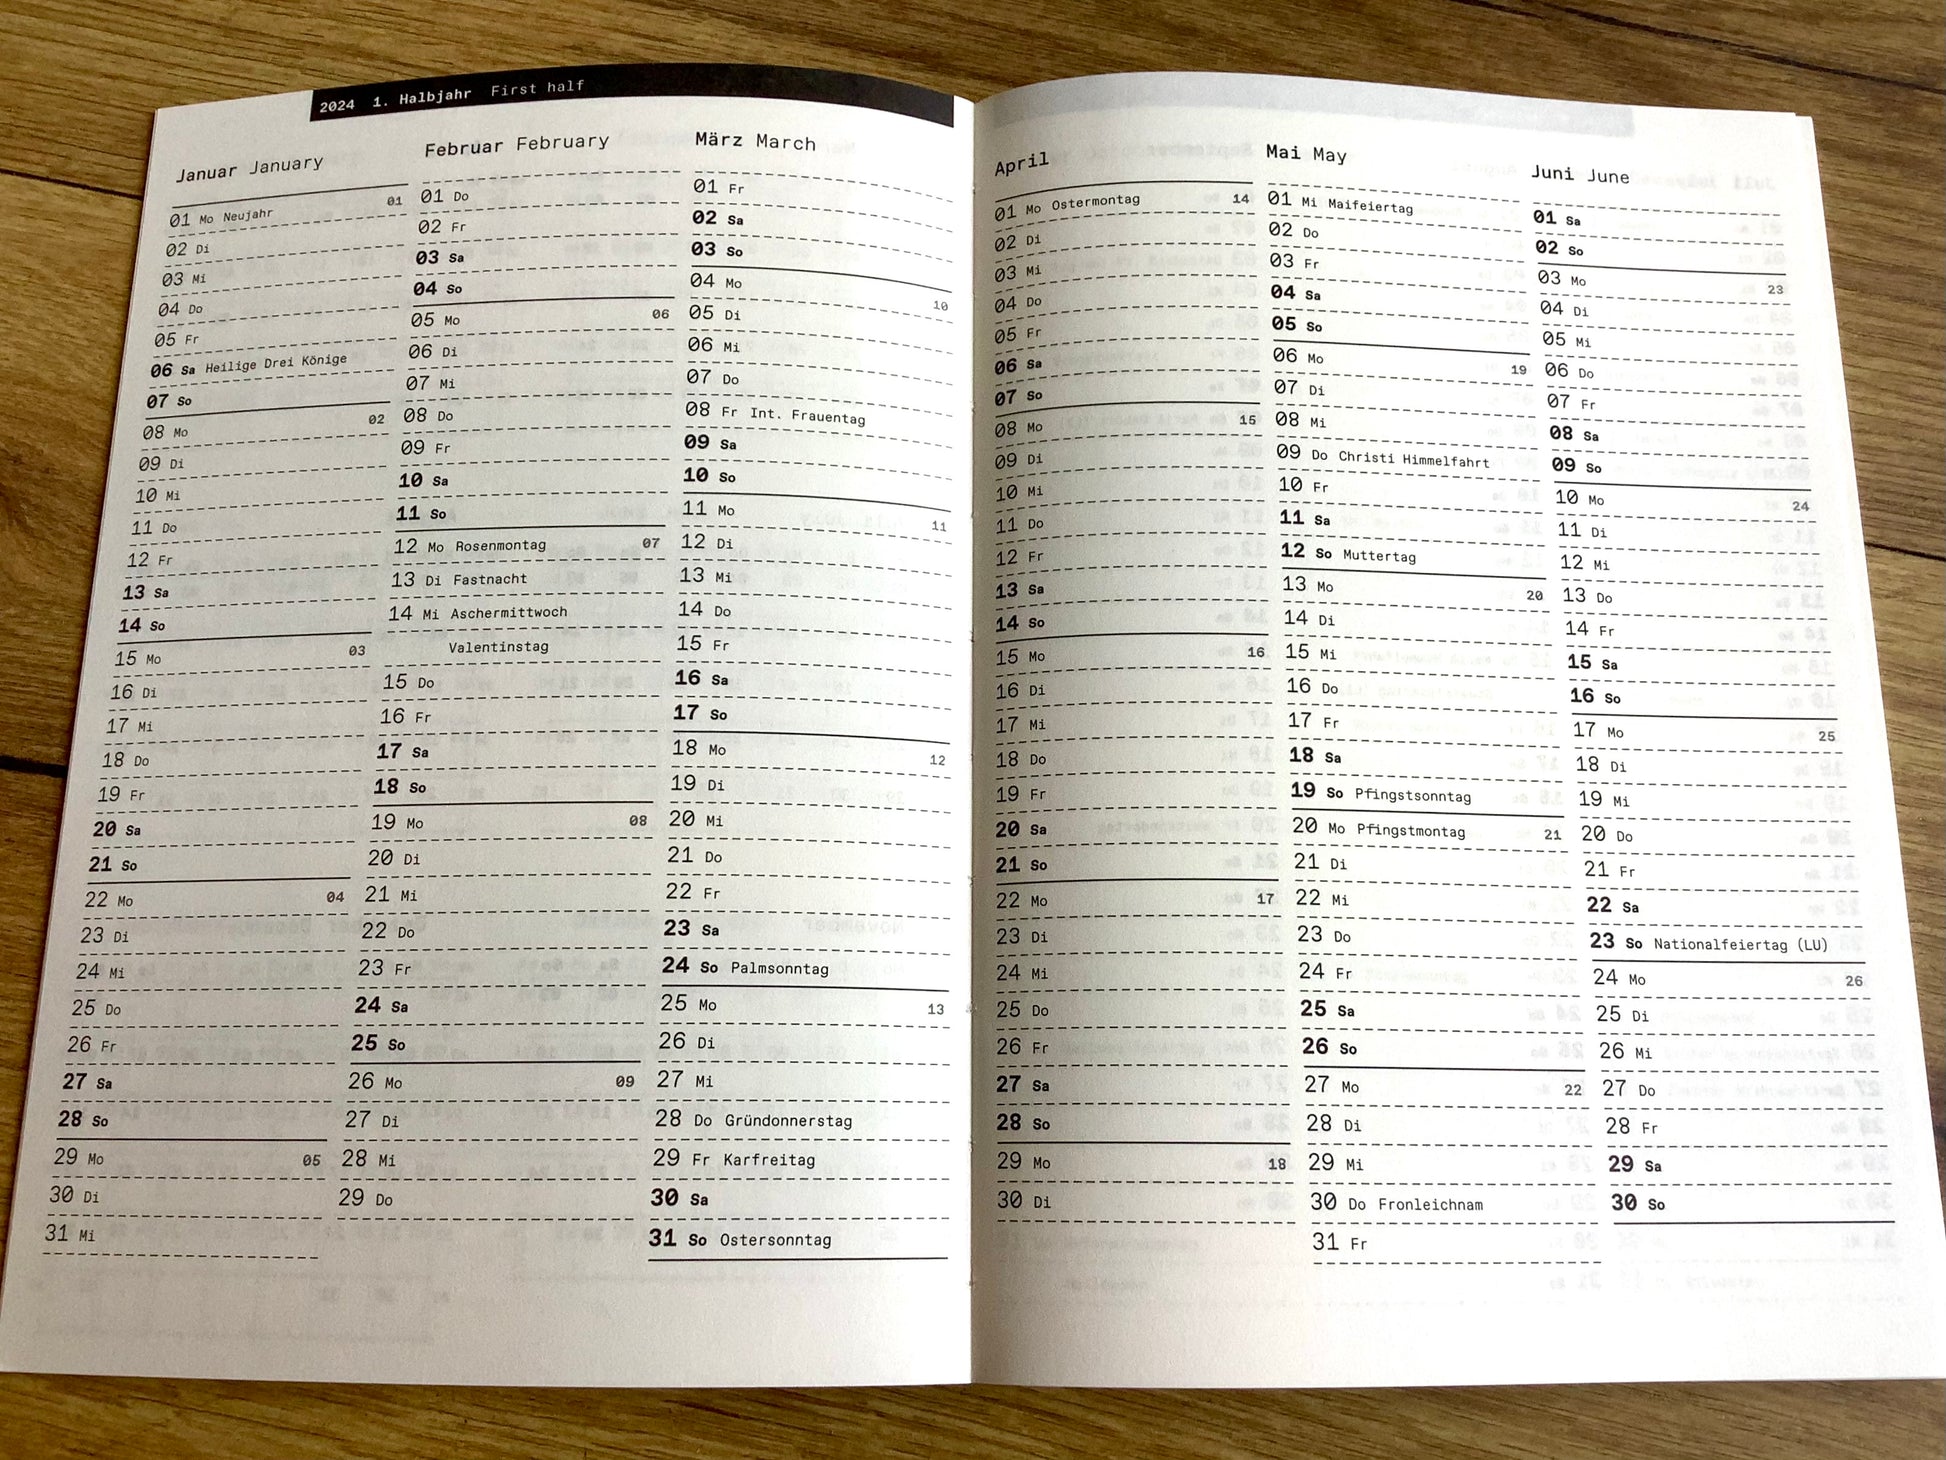 2024 1. Halbjahr First half
Januar January
01 Mo Neujahr 01
02 Di
03 Mi
04 Do
05 Fr
06 Sa Heilige Drei Könige
07 So
08 Mo 02
09 Di
10 Mi
11 Do
12 Fr
13 Sa
14 So
15 Mo 03
16 Di
17 Mi
18 Do
19 Fr
20 Sa
21 So
22 Mo 04
23 Di
24 Mi
25 Do
26 Fr
27 Sa
28 So
29 Mo 05
30 Di
31 Mi
Februar February
01 Do
02 Fr
03 Sa
04 So
05 Mo 06
06 Di
07 Mi
08 Do
09 Fr
10 Sa
11 So
12 Mo Rosenmontag 07
13 Di Fastnacht
14 Mi Aschermittwoch
Valentinstag
15 Do
16 Fr
17 Sa
18 So
19 Mo 08
20 Di
21 Mi
22 Do
23 Fr
24 Sa
25 So
26 Mo 09
27 Di
28 Mi
29 Do
März March
01 Fr
02 Sa
03 So
04 Mo 10
05 Di
06 Mi
07 Do
08 Fr Int. Frauentag
09 Sa
10 So
11 Mo 11
12 Di
13 Mi
14 Do
15 Fr
16 Sa
17 So
18 Mo 12
19 Di
20 Mi
21 Do
22 Fr
23 Sa
24 So Palmsonntag
25 Mo 13
26 Di
27 Mi
28 Do Gründonnerstag
29 Fr Karfreitag
30 Sa
31 So Ostersonntag
April
01 Mo Ostermontag 14
02 Di
03 Mi
04 Do
05 Fr
06 Sa
07 So
08 Mo 15
09 Di
10 Mi
11 Do
12 Fr
13 Sa
14 So
15 Mo 16
16 Di
17 Mi
18 Do
19 Fr
20 Sa
21 So
22 Mo 17
23 Di
24 Mi
25 Do
26 Fr
27 Sa
28 So
29 Mo 18
30 Di
Mai May
01 Mi Maifeiertag
02 Do
03 Fr
04 Sa
05 So
06 Mo 19
07 Di
08 Mi
09 Do Christi Himmelfahrt
10 Fr
11 Sa
12 So Muttertag
13 Mo 20
14 Di
15 Mi
16 Do
17 Fr
18 Sa
19 So Pfingstsonntag
20 Mo Pfingstmontag 21
21 Di
22 Mi
23 Do
24 Fr
25 Sa
26 So
27 Mo 22
28 Di
29 Mi
30 Do Fronleichnam
31 Fr
Juni June
01 Sa
02 So
03 Mo 23
04 Di
05 Mi
06 Do
07 Fr
08 Sa
09 So
10 Mo 24
11 Di
12 Mi
13 Do
14 Fr
15 Sa
16 So
17 Mo 25
18 Di
19 Mi
20 Do
21 Fr
22 Sa
23 So Nationalfeiertag (LU)
24 Mo 26
25 Di
26 Mi
27 Do
28 Fr
29 Sa
30 So